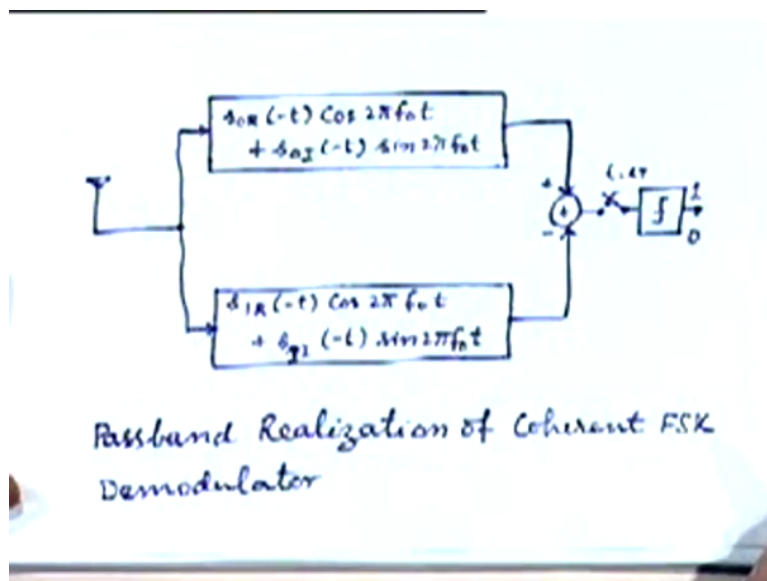 s₀R (-t) Cos 2πf₀t
+ s₀I (-t) sin 2πf₀t
+
+
-
1
0
s₁R (-t) Cos 2πf₀t
+ s₁I (-t) sin 2πf₀t
Passband Realization of Coherent FSK
Demodulator